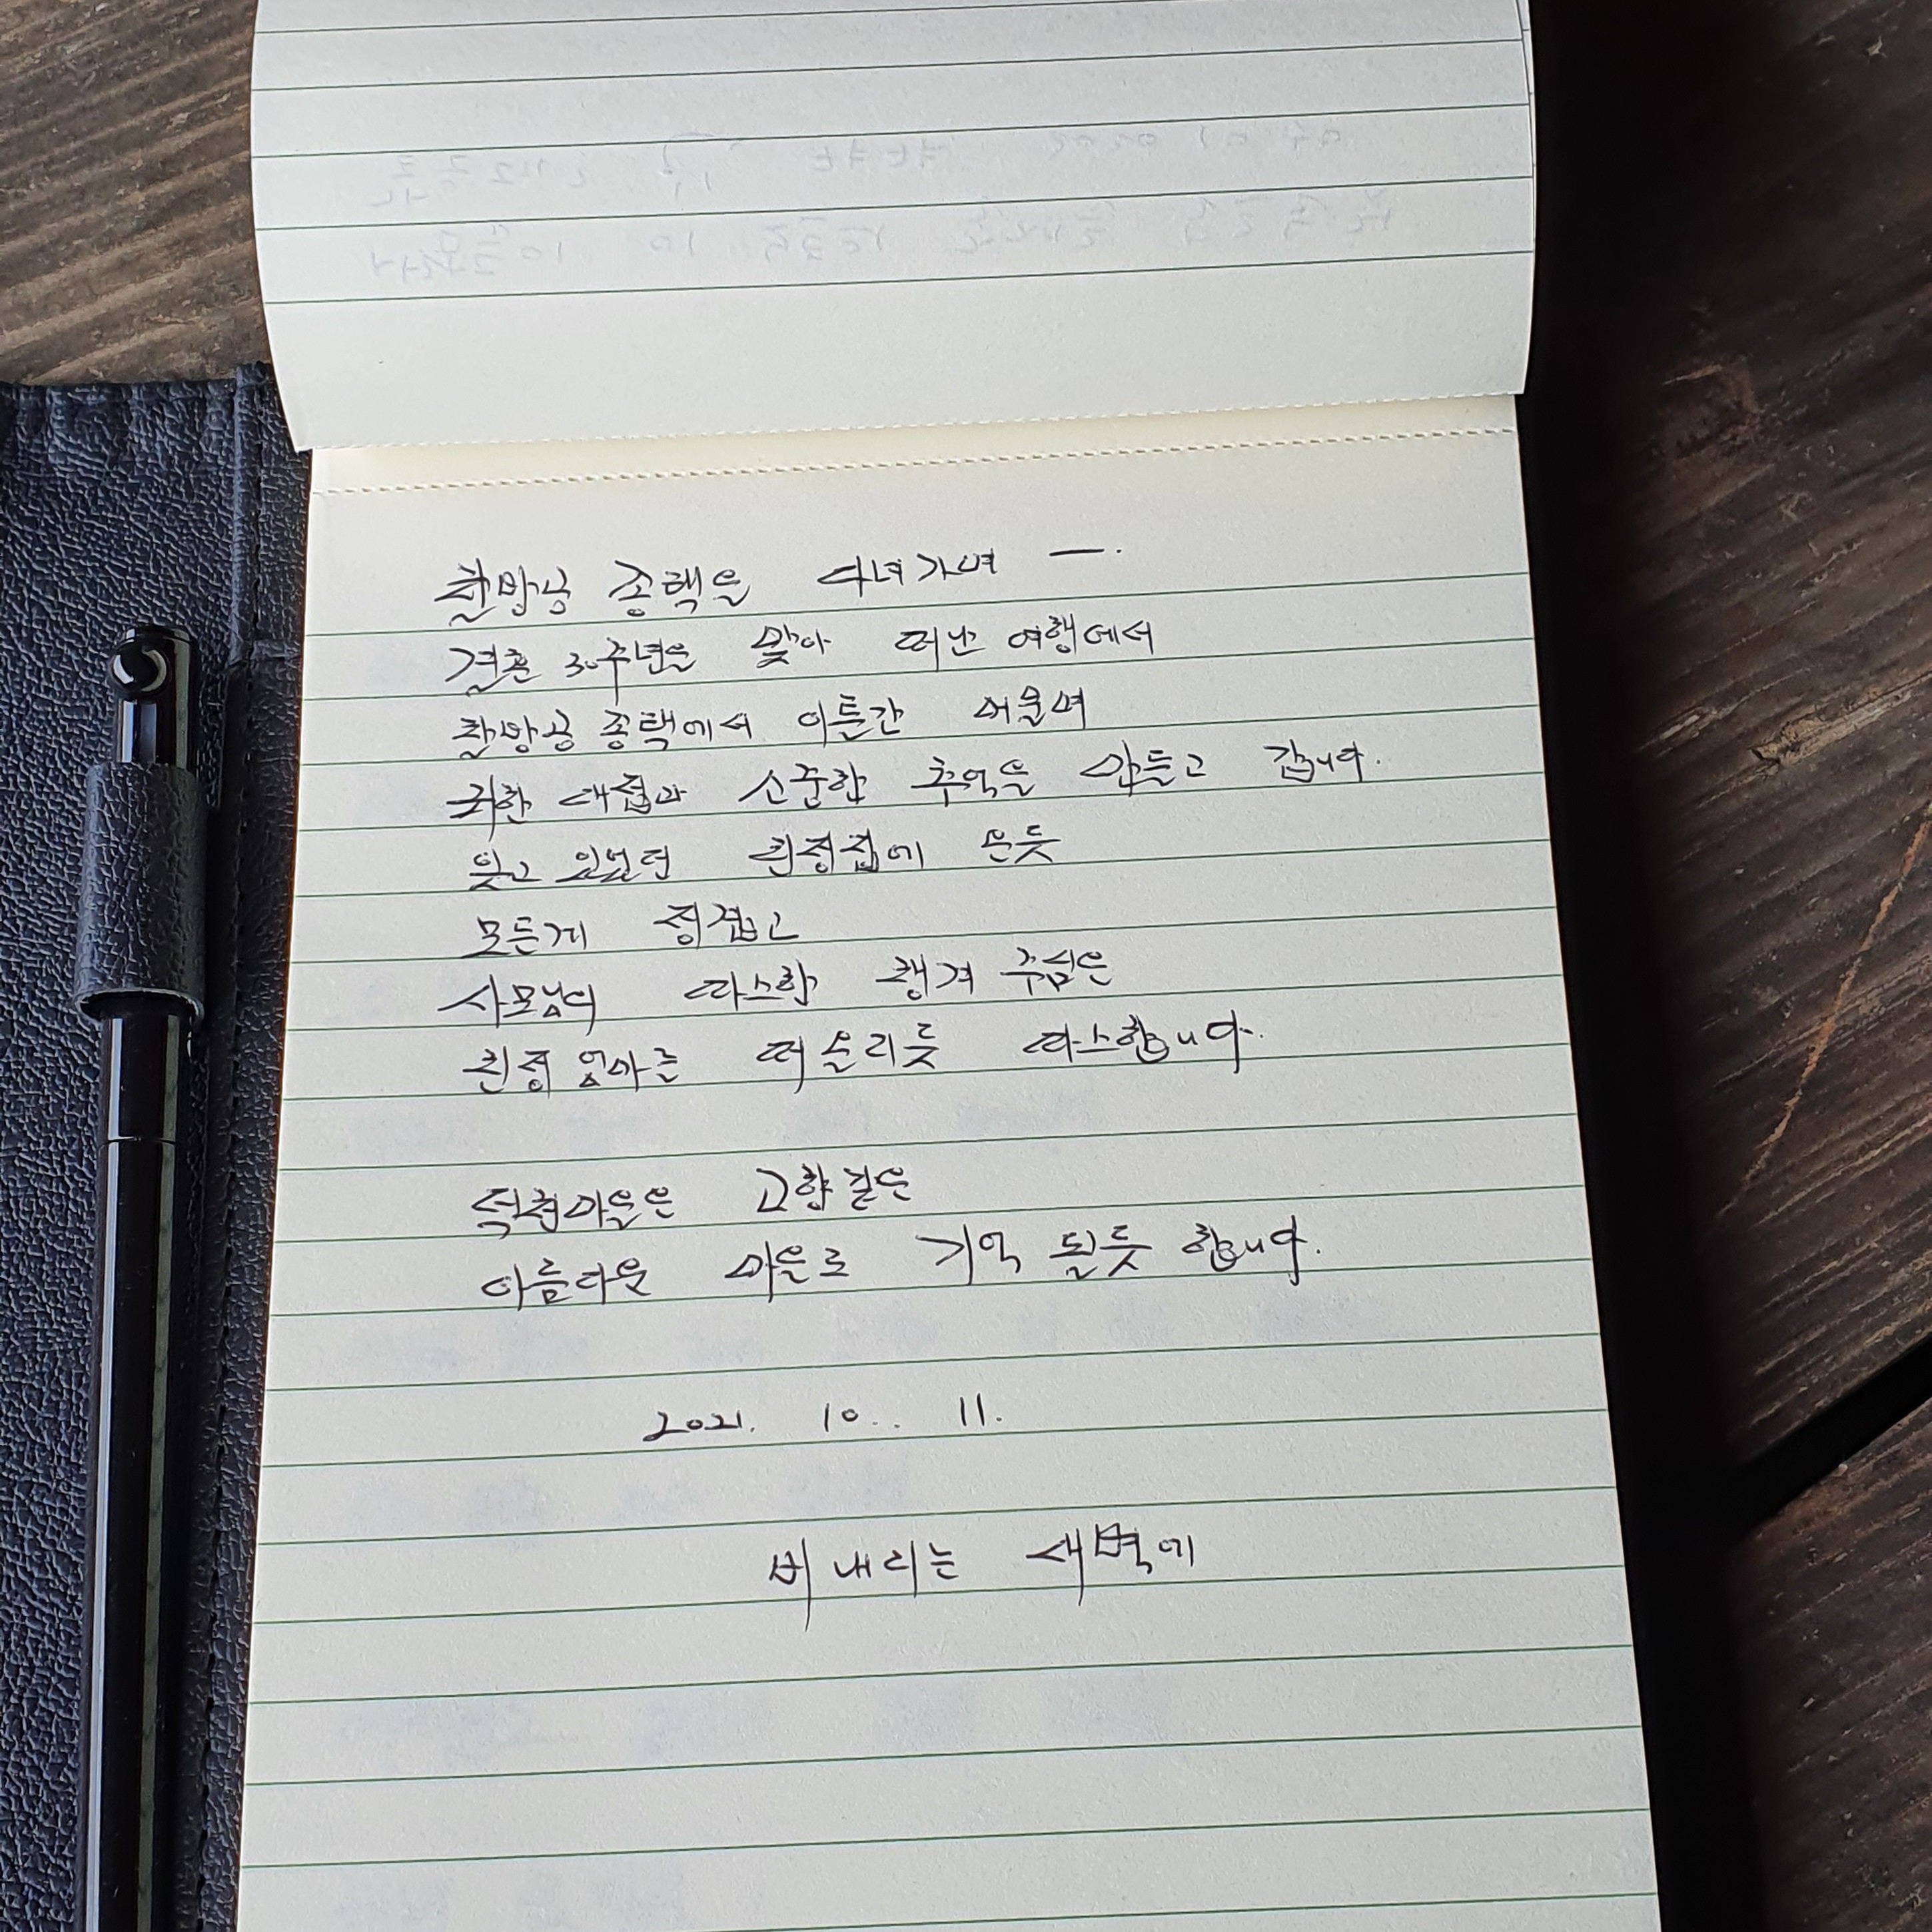 찰방공 종택을 다녀가며 —.
결혼 30주년을 맞아 떠난 여행에서
찰방공 종택에서 이틀간 머물며
귀한 대접과 소중한 추억을 만들고 갑니다.
잊고 있었던 친정집에 온듯
모든게 정겹고
사모님의 따스한 챙겨 주심은
친정 엄마를 떠올리듯 따스합니다.
덕천마을은 고향같은
아름다운 마을로 기억 될듯 합니다.
2021. 10.. 11.
비 내리는 새벽에